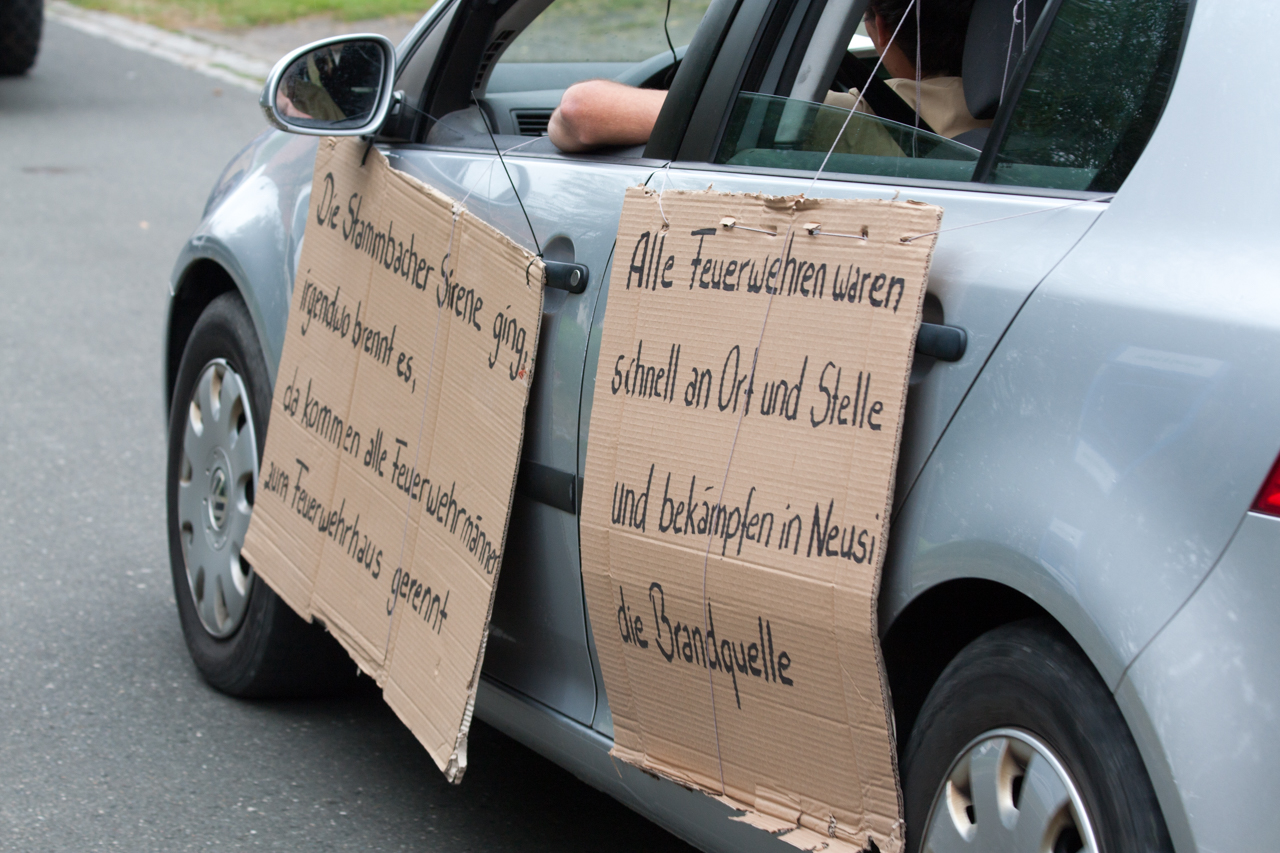 Die Stammbacher Sirene ging,
irgendwo brennt es,
da kommen alle Feuerwehrmänner
zum Feuerwehrhaus gerennt
Alle Feuerwehren waren
schnell an Ort und Stelle
und bekämpfen in Neusi
die Brandquelle